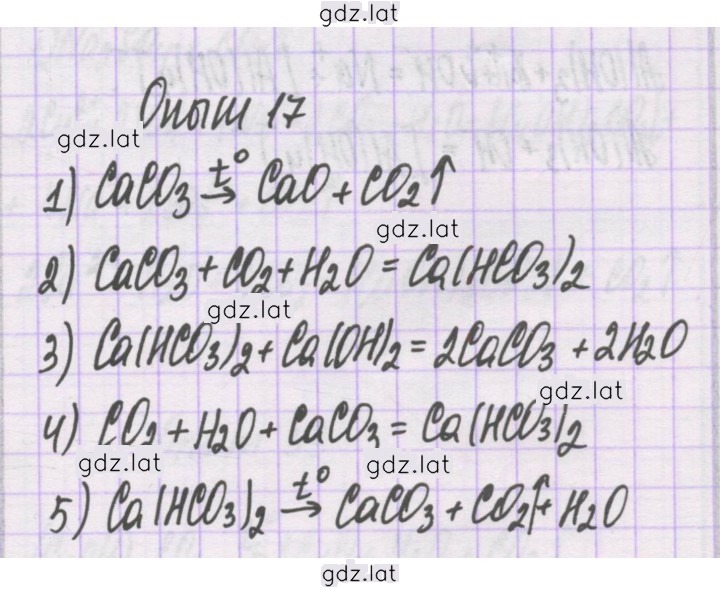 gdz.lat
Опыт 17
gdz.lat
1) CaCO3 t°→ CaO + CO2↑
gdz.lat
2) CaCO3 + CO2 + H2O = Ca(HCO3)2
gdz.lat
3) Ca(HCO3)2 + Ca(OH)2 = 2CaCO3 + 2H2O
gdz.lat
4) CO2 + H2O + CaCO3 = Ca(HCO3)2
gdz.lat gdz.lat
5) Ca(HCO3)2 t°→ CaCO3 + CO2↑ + H2O
gdz.lat